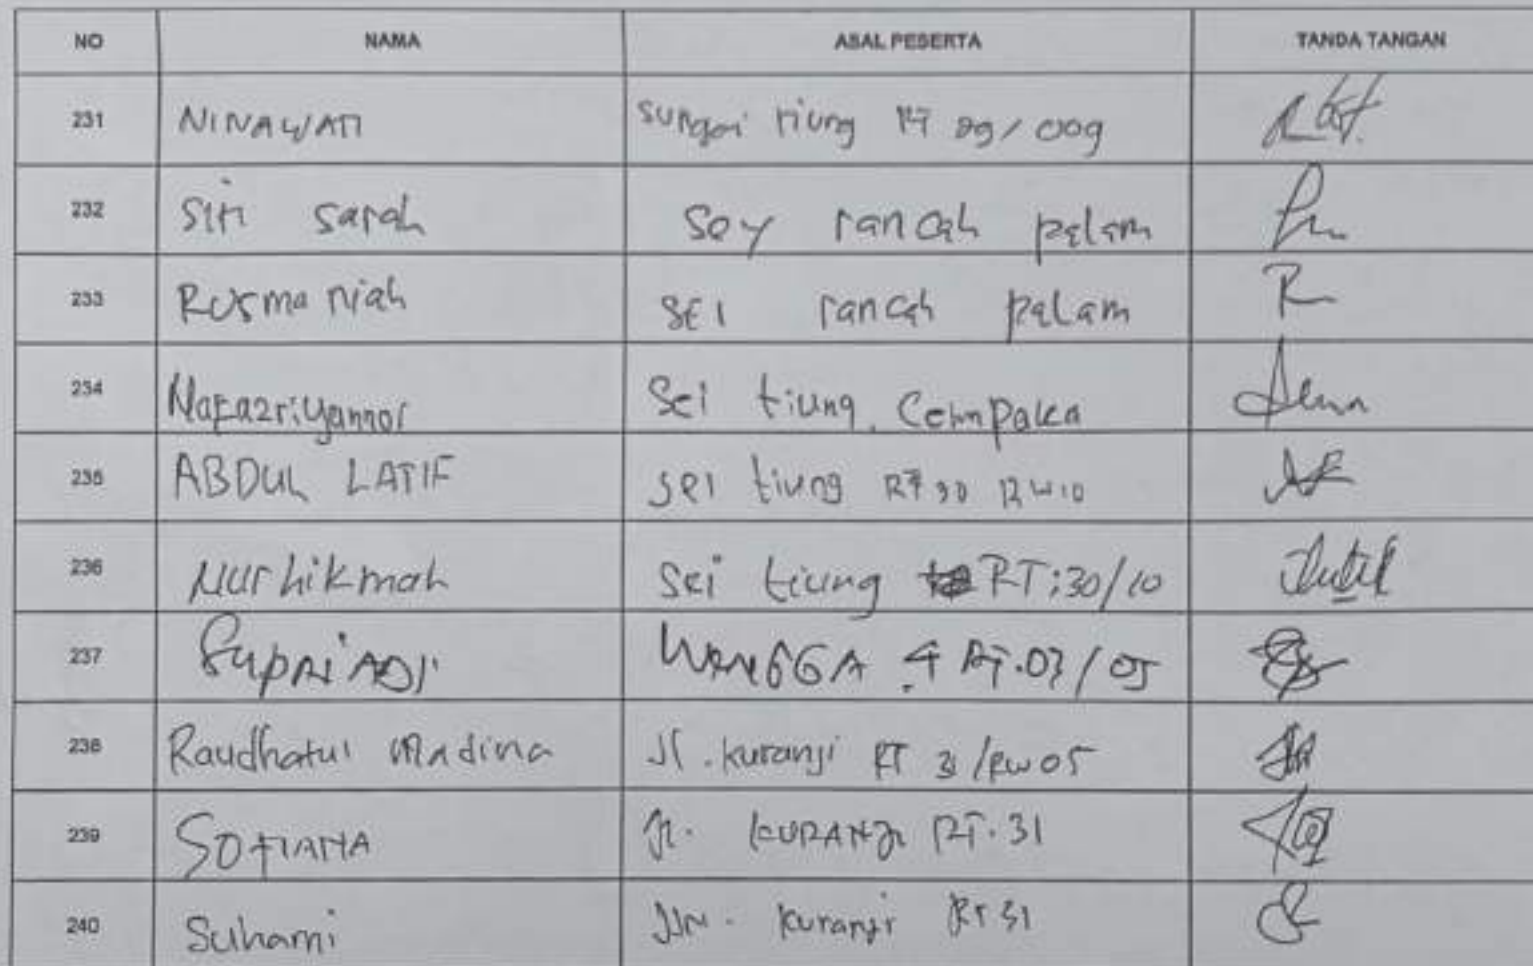 NO NAMA ASAL PESERTA TANDA TANGAN
231 NINAWATI sungai tiung RT 29/009
232 Siti sarah Sey rancah palam
233 Rusmaniah SEI rancah palam
234 Nafazriyannor Sei tiung. Cempaka
235 ABDUL LATIF sei tiung RT 30 RW 10
236 Nurhikmah Sei tiung RT:30/10
237 SupriADJI WENGGA 4 RT.03/05
238 Raudhatul Madina Jl. kuranji RT 31/RW 05
239 SOFIANA Jl. KURANJI RT.31
240 Suharni Jln. kuranji RT 31